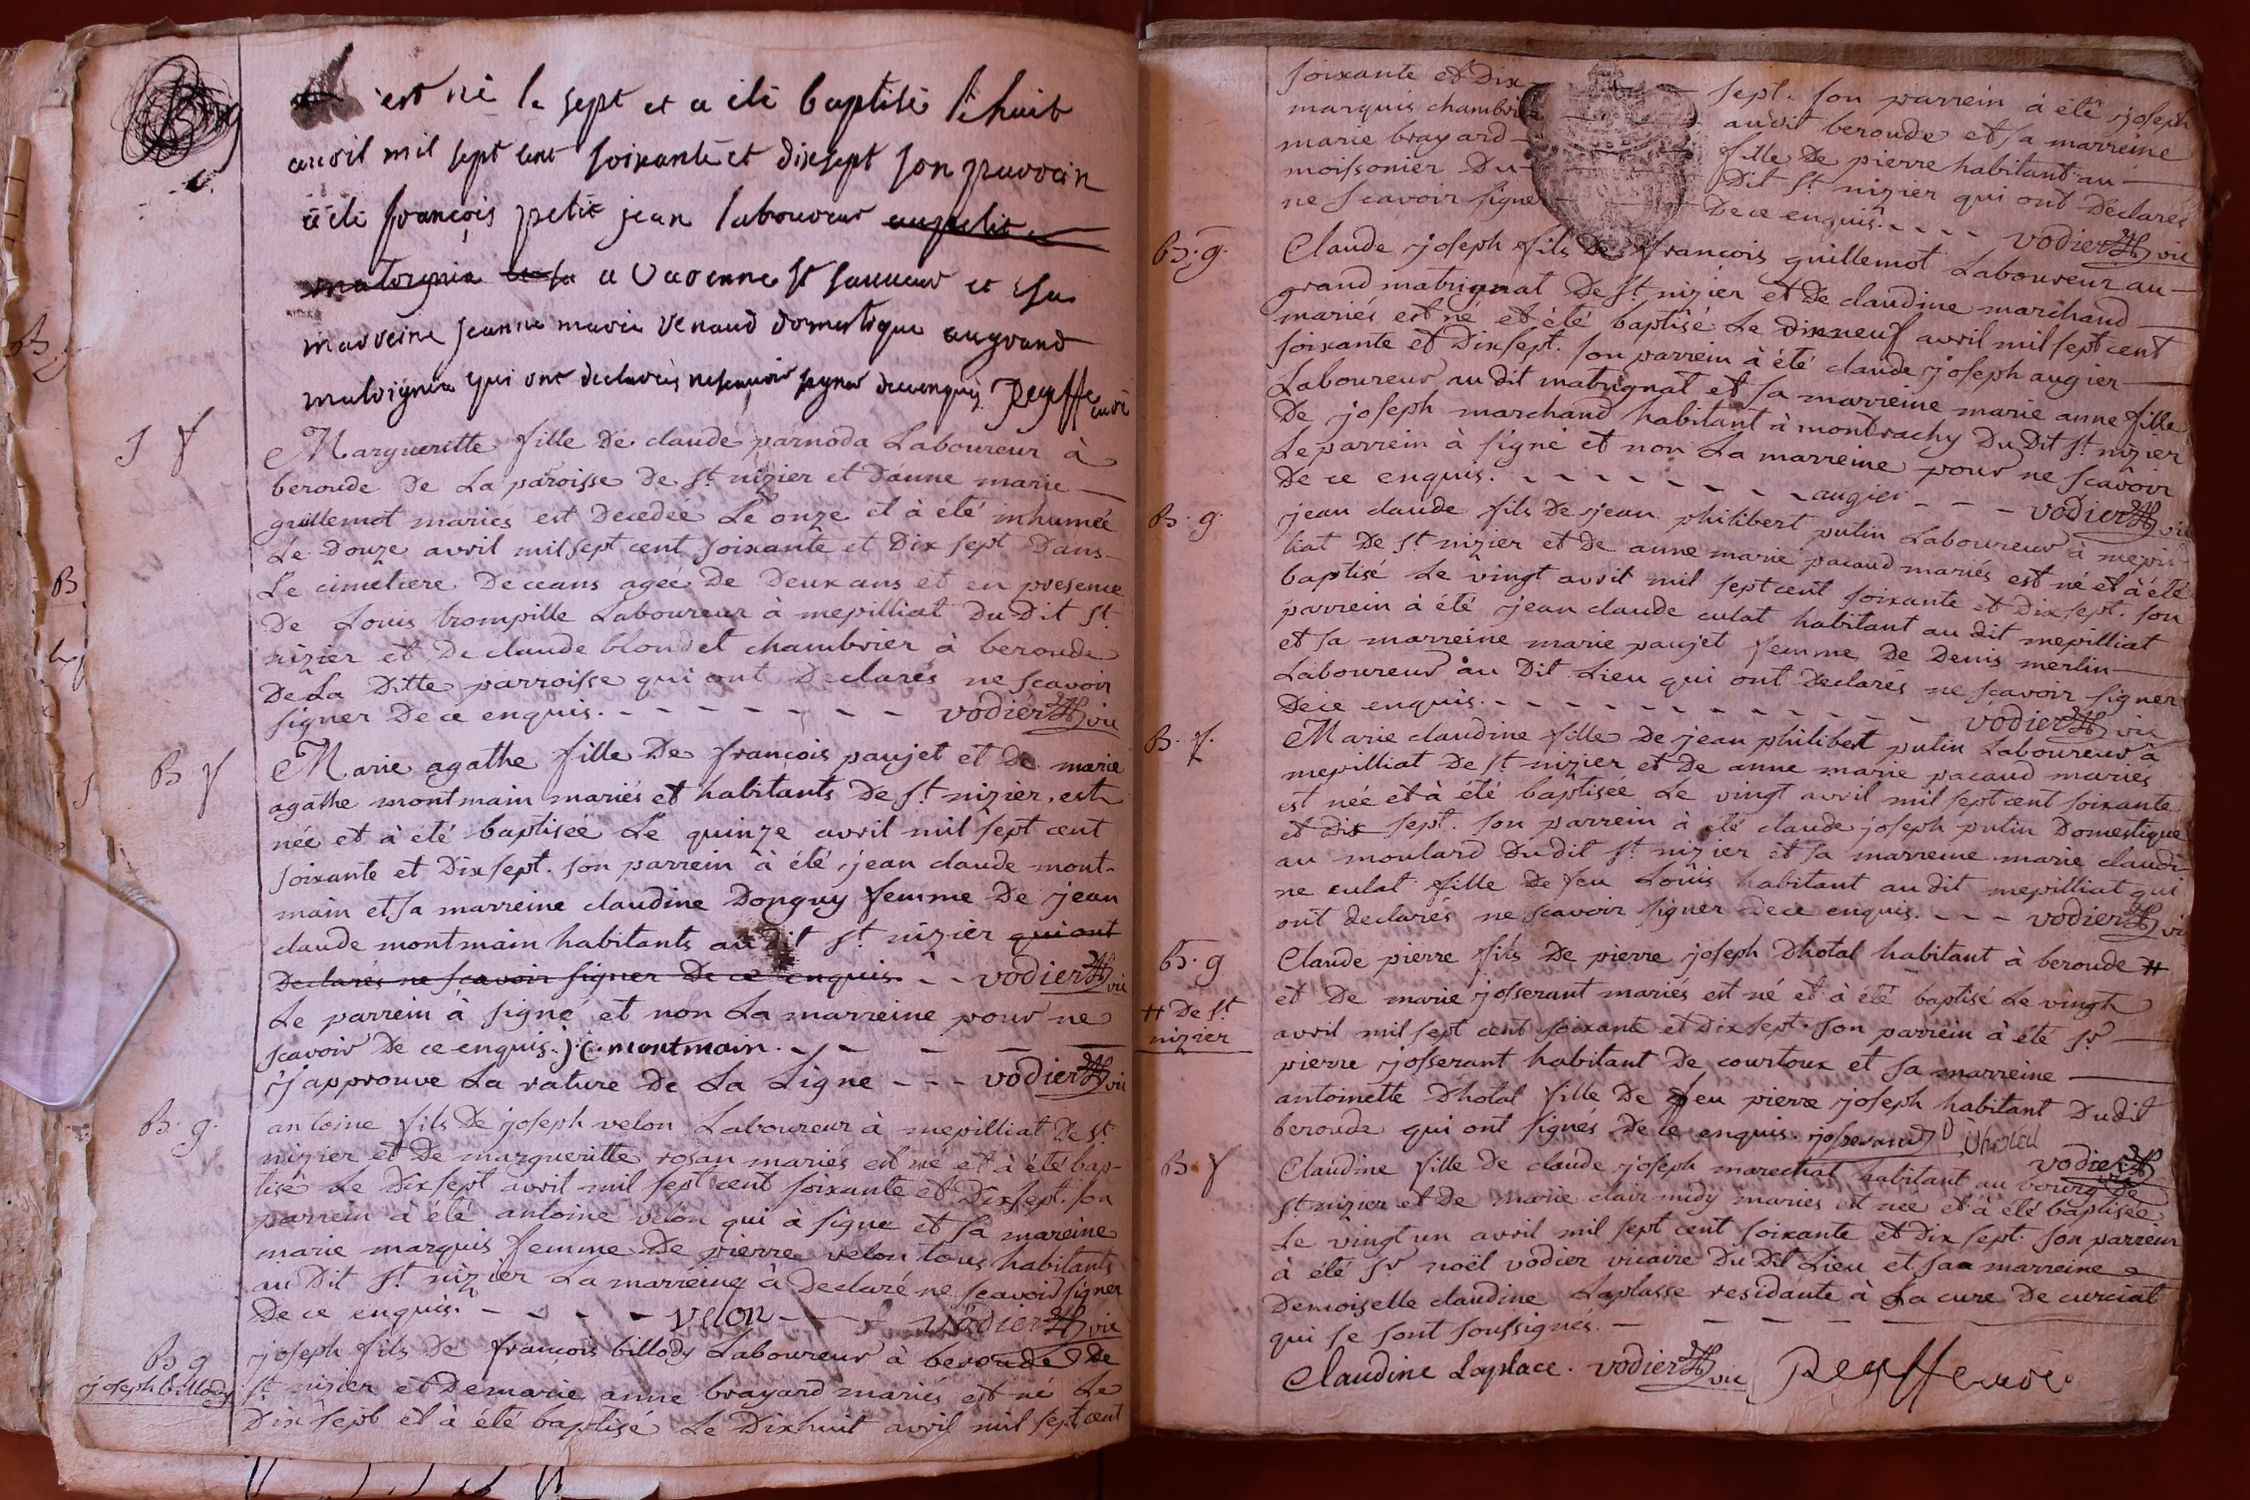 B g
est né le sept et a été baptisé le huit
avril mil sept cent soixante et dixsept son parrain
a été françois petit jean laboureur aupetit
matrignia a varenne st sauveur et sa
marreine jeanne marie venaud domestique augrand
matrignia qui ont declarés nesavoir signer decenquis Peyffe curé
S f
Margueritte fille De claude parnoda Laboureur à
beroude De La paroisse De St nizier et Danne marie
guillemot mariés est Decedée Le onze et à eté inhumée
Le Douze avril mil sept cent soixante et Dix sept Dans
Le cimetiere De ceans agée De Deux ans et en presence
De Louis trompille Laboureur à mepilliat Du Dit St
nizier et De claude blondet chambrier à beroude
De La Ditte parroisse qui ont Declarés ne scavoir
signer De ce enquis. vodier vic
B f
Marie agathe fille De françois paujet et De marie
agathe montmain mariés et habitants De St nizier, est
née et à été baptisée Le quinze avril mil sept cent
soixante et Dixsept. son parrein à été jean claude mont-
main et sa marreine claudine Donguy femme De jean
claude montmain habitants au dit St nizier qui ont
Declarés ne scavoir signer De ce enquis. vodier vic
Le parrein à signé et non La marreine pour ne
scavoir De ce enquis. j. c. montmain.
j'approuve La rature De La Ligne - - - vodier vic
B. g.
antoine fils De joseph velon Laboureur à mepilliat De St
nizier et De margueritte rosan mariés est né et à été bap-
tisé Le Dixsept avril mil sept cent soixante et Dixsept. son
parrein à été antoine velon qui à signe et sa mareine
marie marquis femme De pierre velon tous habitants
au Dit St nizier La marreine à Declaré ne scavoir signer
De ce enquis. - - - - velon - - vodier vic
B g
joseph billody
joseph fils De françois billody Laboureur à beroude De
St nizier et De marie anne brayard mariés est né Le
Dix sept et à été baptisé Le Dixhuit avril mil sept cent
soixante et Dix sept. son parrein à été joseph
marquis chambrier audit beroude et sa marreine
marie brayard fille De pierre habitant au
moissonier Du Dit St nizier qui ont Declarés
ne scavoir signer De ce enquis. - - - - vodier vic
B. g.
Claude joseph fils De françois guillemot Laboureur au
grand matrignat De St nizier et De claudine marchand
mariés est né et été baptisé Le dixneuf avril mil sept cent
soixante et Dixsept. son parrein à été claude joseph augier
Laboureur au dit matrignat et sa marreine marie anne fille
De joseph marchand habitant à montrachy Du Dit St nizier
Le parrein à signé et non La marreine pour ne scavoir
De ce enquis. - - - - - - augier - - - vodier vic
B. g.
jean claude fils De jean philibert putin Laboureur à mepil-
liat De St nizier et De anne marie pacaud mariés est né et à été
baptisé Le vingt avril mil sept cent soixante et dixsept. son
parrein à été jean claude culat habitant au dit mepilliat
et sa marreine marie paujet femme De Denis merlin
Laboureur au Dit Lieu qui ont Declarés ne scavoir signer
De ce enquis. - - - - - - - - - - - - vodier vic
B. f.
Marie claudine fille De jean philibert putin Laboureur à
mepilliat De St nizier et De anne marie pacaud mariés
est née et à été baptisée Le vingt avril mil sept cent soixante
et dix sept. son parrein à été claude joseph putin Domestique
au moulard Du dit St nizier et sa marreine marie claudi-
ne culat fille De feu Loüis habitant au dit mepilliat qui
ont declarés ne scavoir signer De ce enquis. - - - vodier vic
B. g
Claude pierre fils De pierre joseph Dhotal habitant à beroude #
# De St
nizier
et De marie josserant mariés est né et à été baptisé Le vingt
avril mil sept cent soixante et Dixsept. son parrein à été sr
pierre josserant habitant De courtoux et sa marreine
antoinette Dhotal fille De feu pierre joseph habitant Du dit
beroude qui ont signés De ce enquis. josserand D Dhotal
vodier vic
B. f
Claudine fille De claude joseph marechal habitant au bourg De
St nizier et De marie clair midy mariés est née et à été baptisée
Le vingt un avril mil sept cent soixante et Dix sept. son parrein
à été Sr noël vodier vicaire Du Dit Lieu et sa marreine
Demoiselle claudine Laplasse residante à La cure De curciat
qui se sont soussignés.
Claudine Laplace. vodier vic Peyffe curé